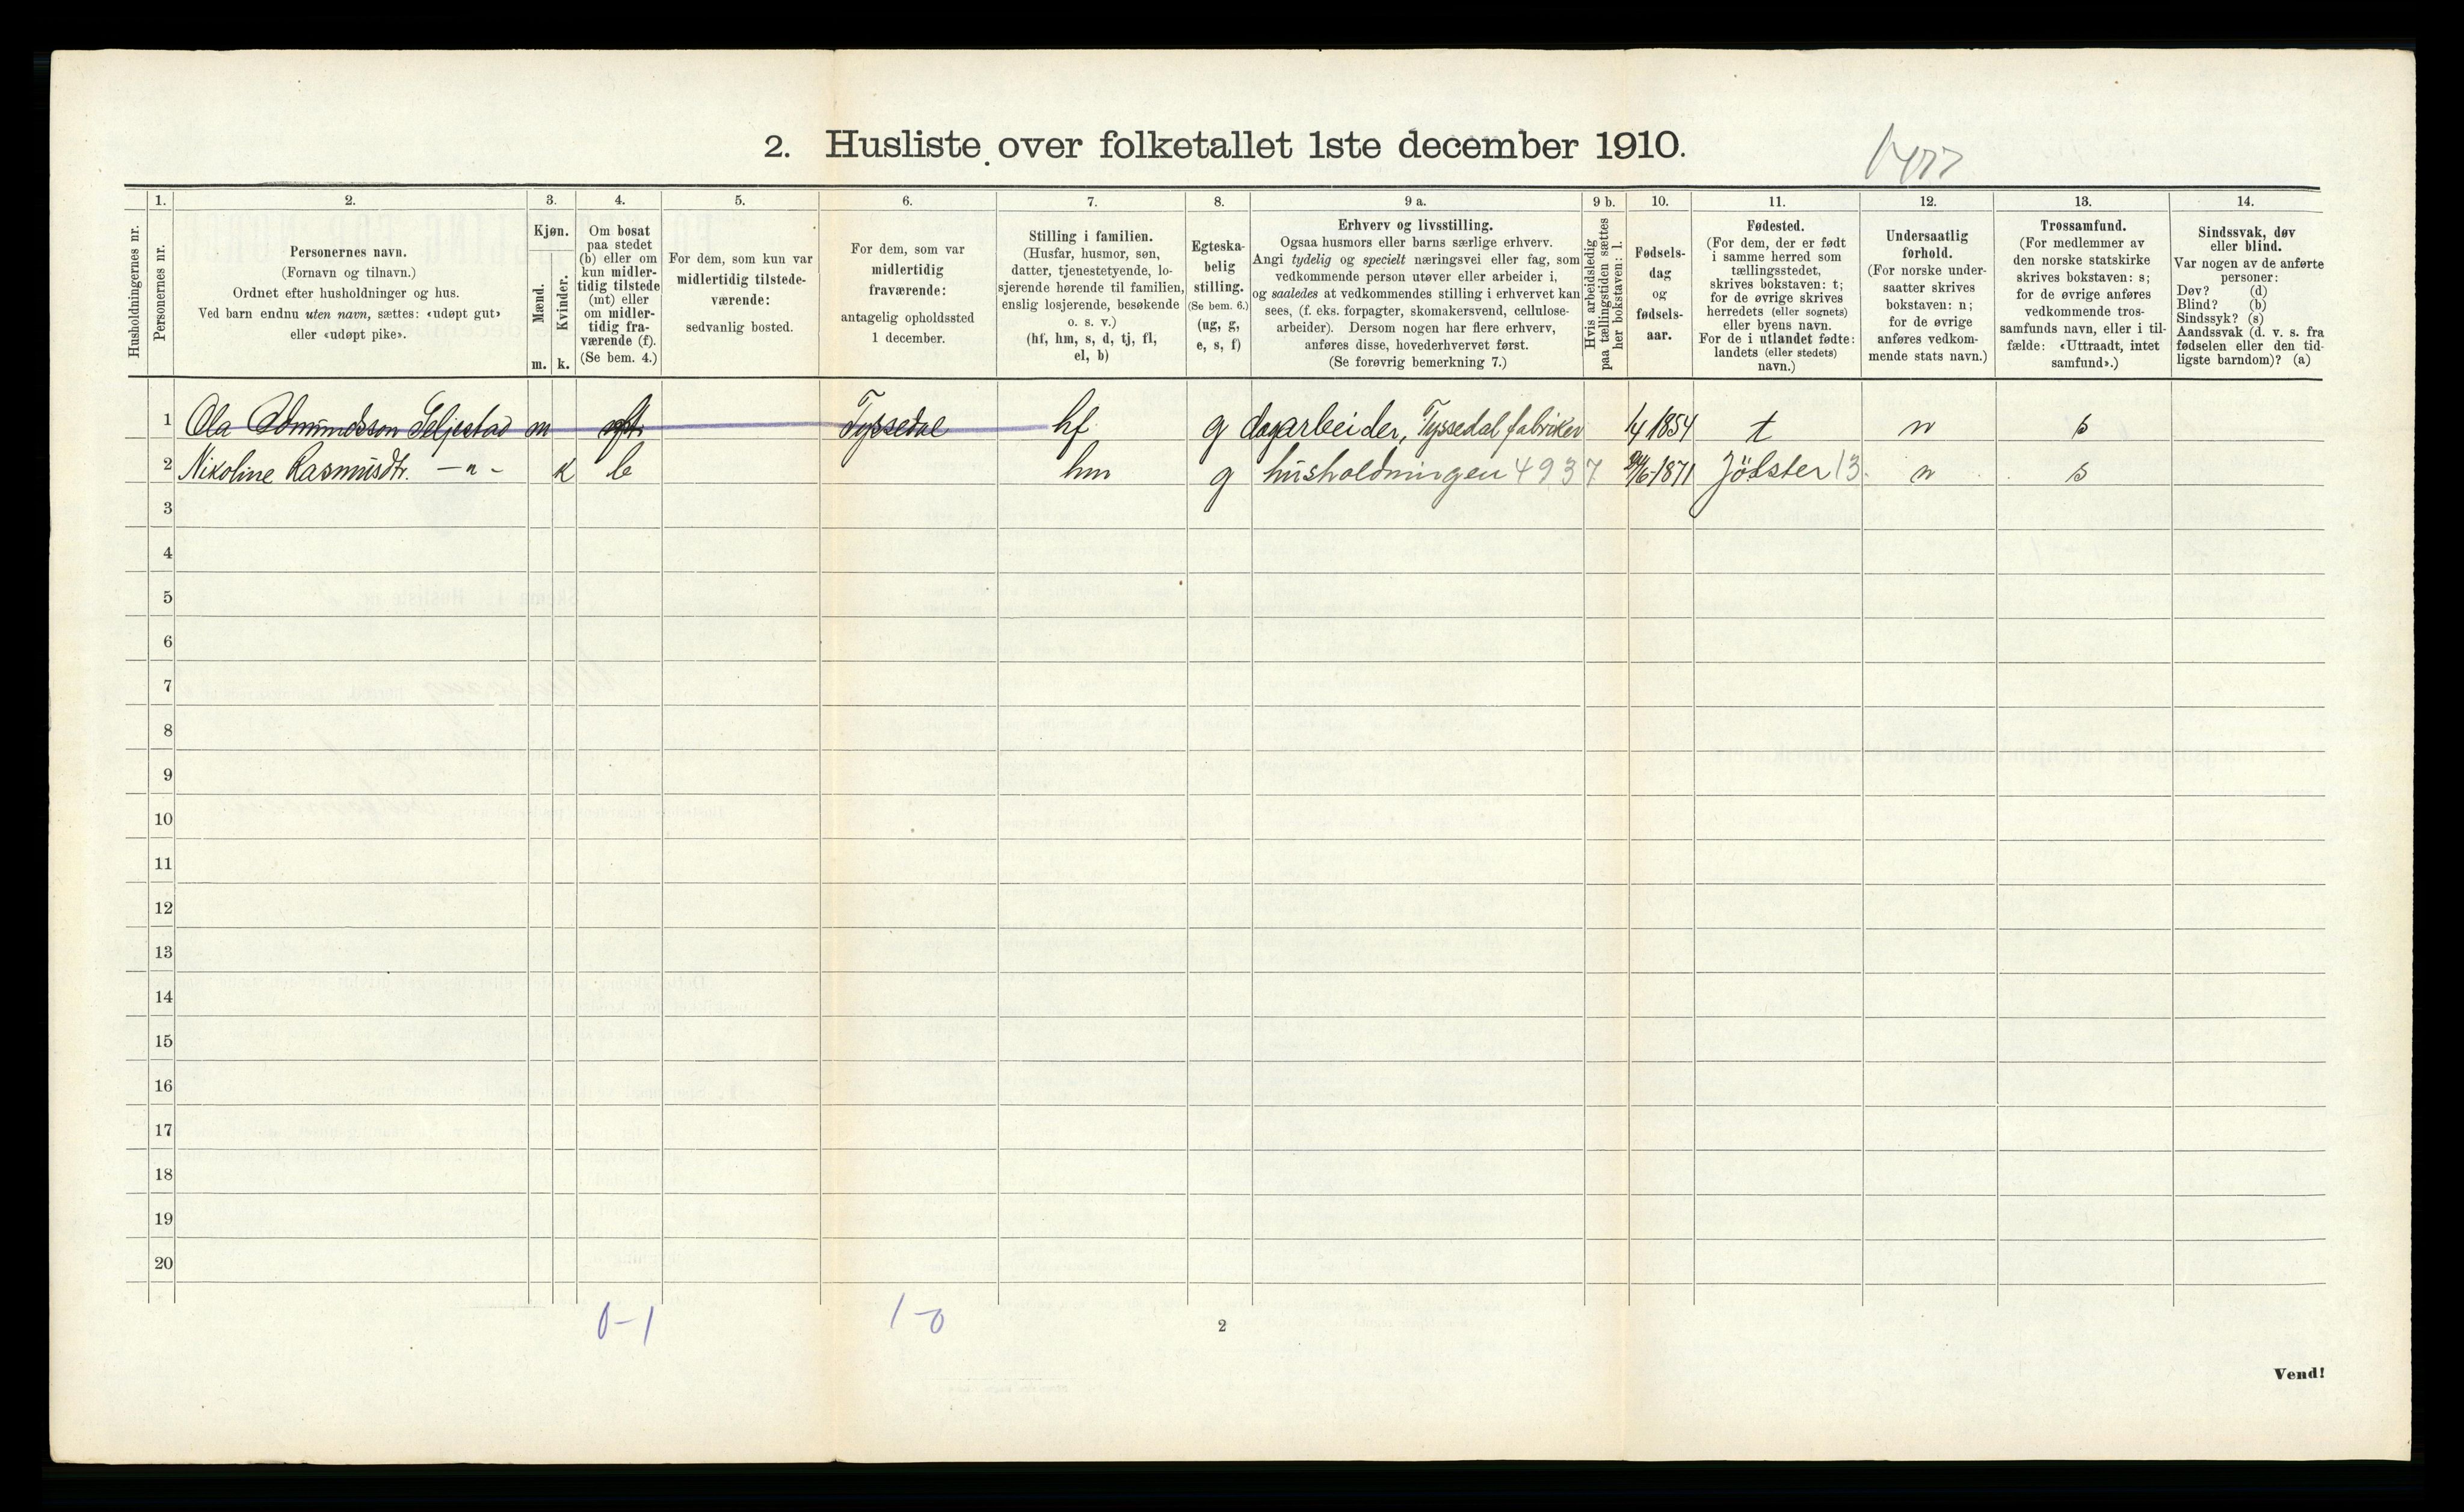 2. Husliste over folketallet 1ste december 1910.
Husholdningernes nr.
1.
Personernes nr.
2.
Personernes navn.
(Fornavn og tilnavn.)
Ordnet efter husholdninger og hus.
Ved barn endnu uten navn, sættes: «udøpt gut»
eller «udøpt pike».
3.
Kjøn.
Mænd.
Kvinder.
m. k.
4.
Om bosat
paa stedet
(b) eller om
kun midler-
tidig tilstede
(mt) eller
om midler-
tidig fra-
værende (f).
(Se bem. 4.)
5.
For dem, som kun var
midlertidig tilstede-
værende:
sedvanlig bosted.
6.
For dem, som var
midlertidig
fraværende:
antagelig opholdssted
1 december.
7.
Stilling i familien.
(Husfar, husmor, søn,
datter, tjenestetyende, lo-
sjerende hørende til familien,
enslig losjerende, besøkende
o. s. v.)
(hf, hm, s, d, tj, fl,
el, b)
8.
Egteska-
belig
stilling.
(Se bem. 6.)
(ug, g,
e, s, f)
9 a.
Erhverv og livsstilling.
Ogsaa husmors eller barns særlige erhverv.
Angi tydelig og specielt næringsvei eller fag, som
vedkommende person utøver eller arbeider i,
og saaledes at vedkommendes stilling i erhvervet kan
sees, (f. eks. forpagter, skomakersvend, cellulose-
arbeider). Dersom nogen har flere erhverv,
anføres disse, hovederhvervet først.
(Se forøvrig bemerkning 7.)
9 b.
Hvis arbeidsledig
paa tællingstiden sættes
her bokstaven: l.
10.
Fødsels-
dag
og
fødsels-
aar.
11.
Fødested.
(For dem, der er født
i samme herred som
tællingsstedet,
skrives bokstaven: t;
for de øvrige skrives
herredets (eller sognets)
eller byens navn.
For de i utlandet fødte:
landets (eller stedets)
navn.)
12.
Undersaatlig
forhold.
(For norske under-
saatter skrives
bokstaven: n;
for de øvrige
anføres vedkom-
mende stats navn.)
13.
Trossamfund.
(For medlemmer av
den norske statskirke
skrives bokstaven: s;
for de øvrige anføres
vedkommende tros-
samfunds navn, eller i til-
fælde: «Uttraadt, intet
samfund».)
14.
Sindssvak, døv
eller blind.
Var nogen av de anførte
personer:
Døv? (d)
Blind? (b)
Sindssyk? (s)
Aandssvak (d. v. s. fra
fødselen eller den tid-
ligste barndom)? (a)
1 Ola Aamundsson Seljestad m Tyssedal hf g dagarbeider, Tyssedal fabriker 1/4 1854 t n s
2 Nikoline Rasmusdtr. — " — k b hm g husholdningen 4937 1871 Jölster 13. n s
3
4
5
6
7
8
9
10
11
12
13
14
15
16
17
18
19
20
0-1 1-0
2
Vend!